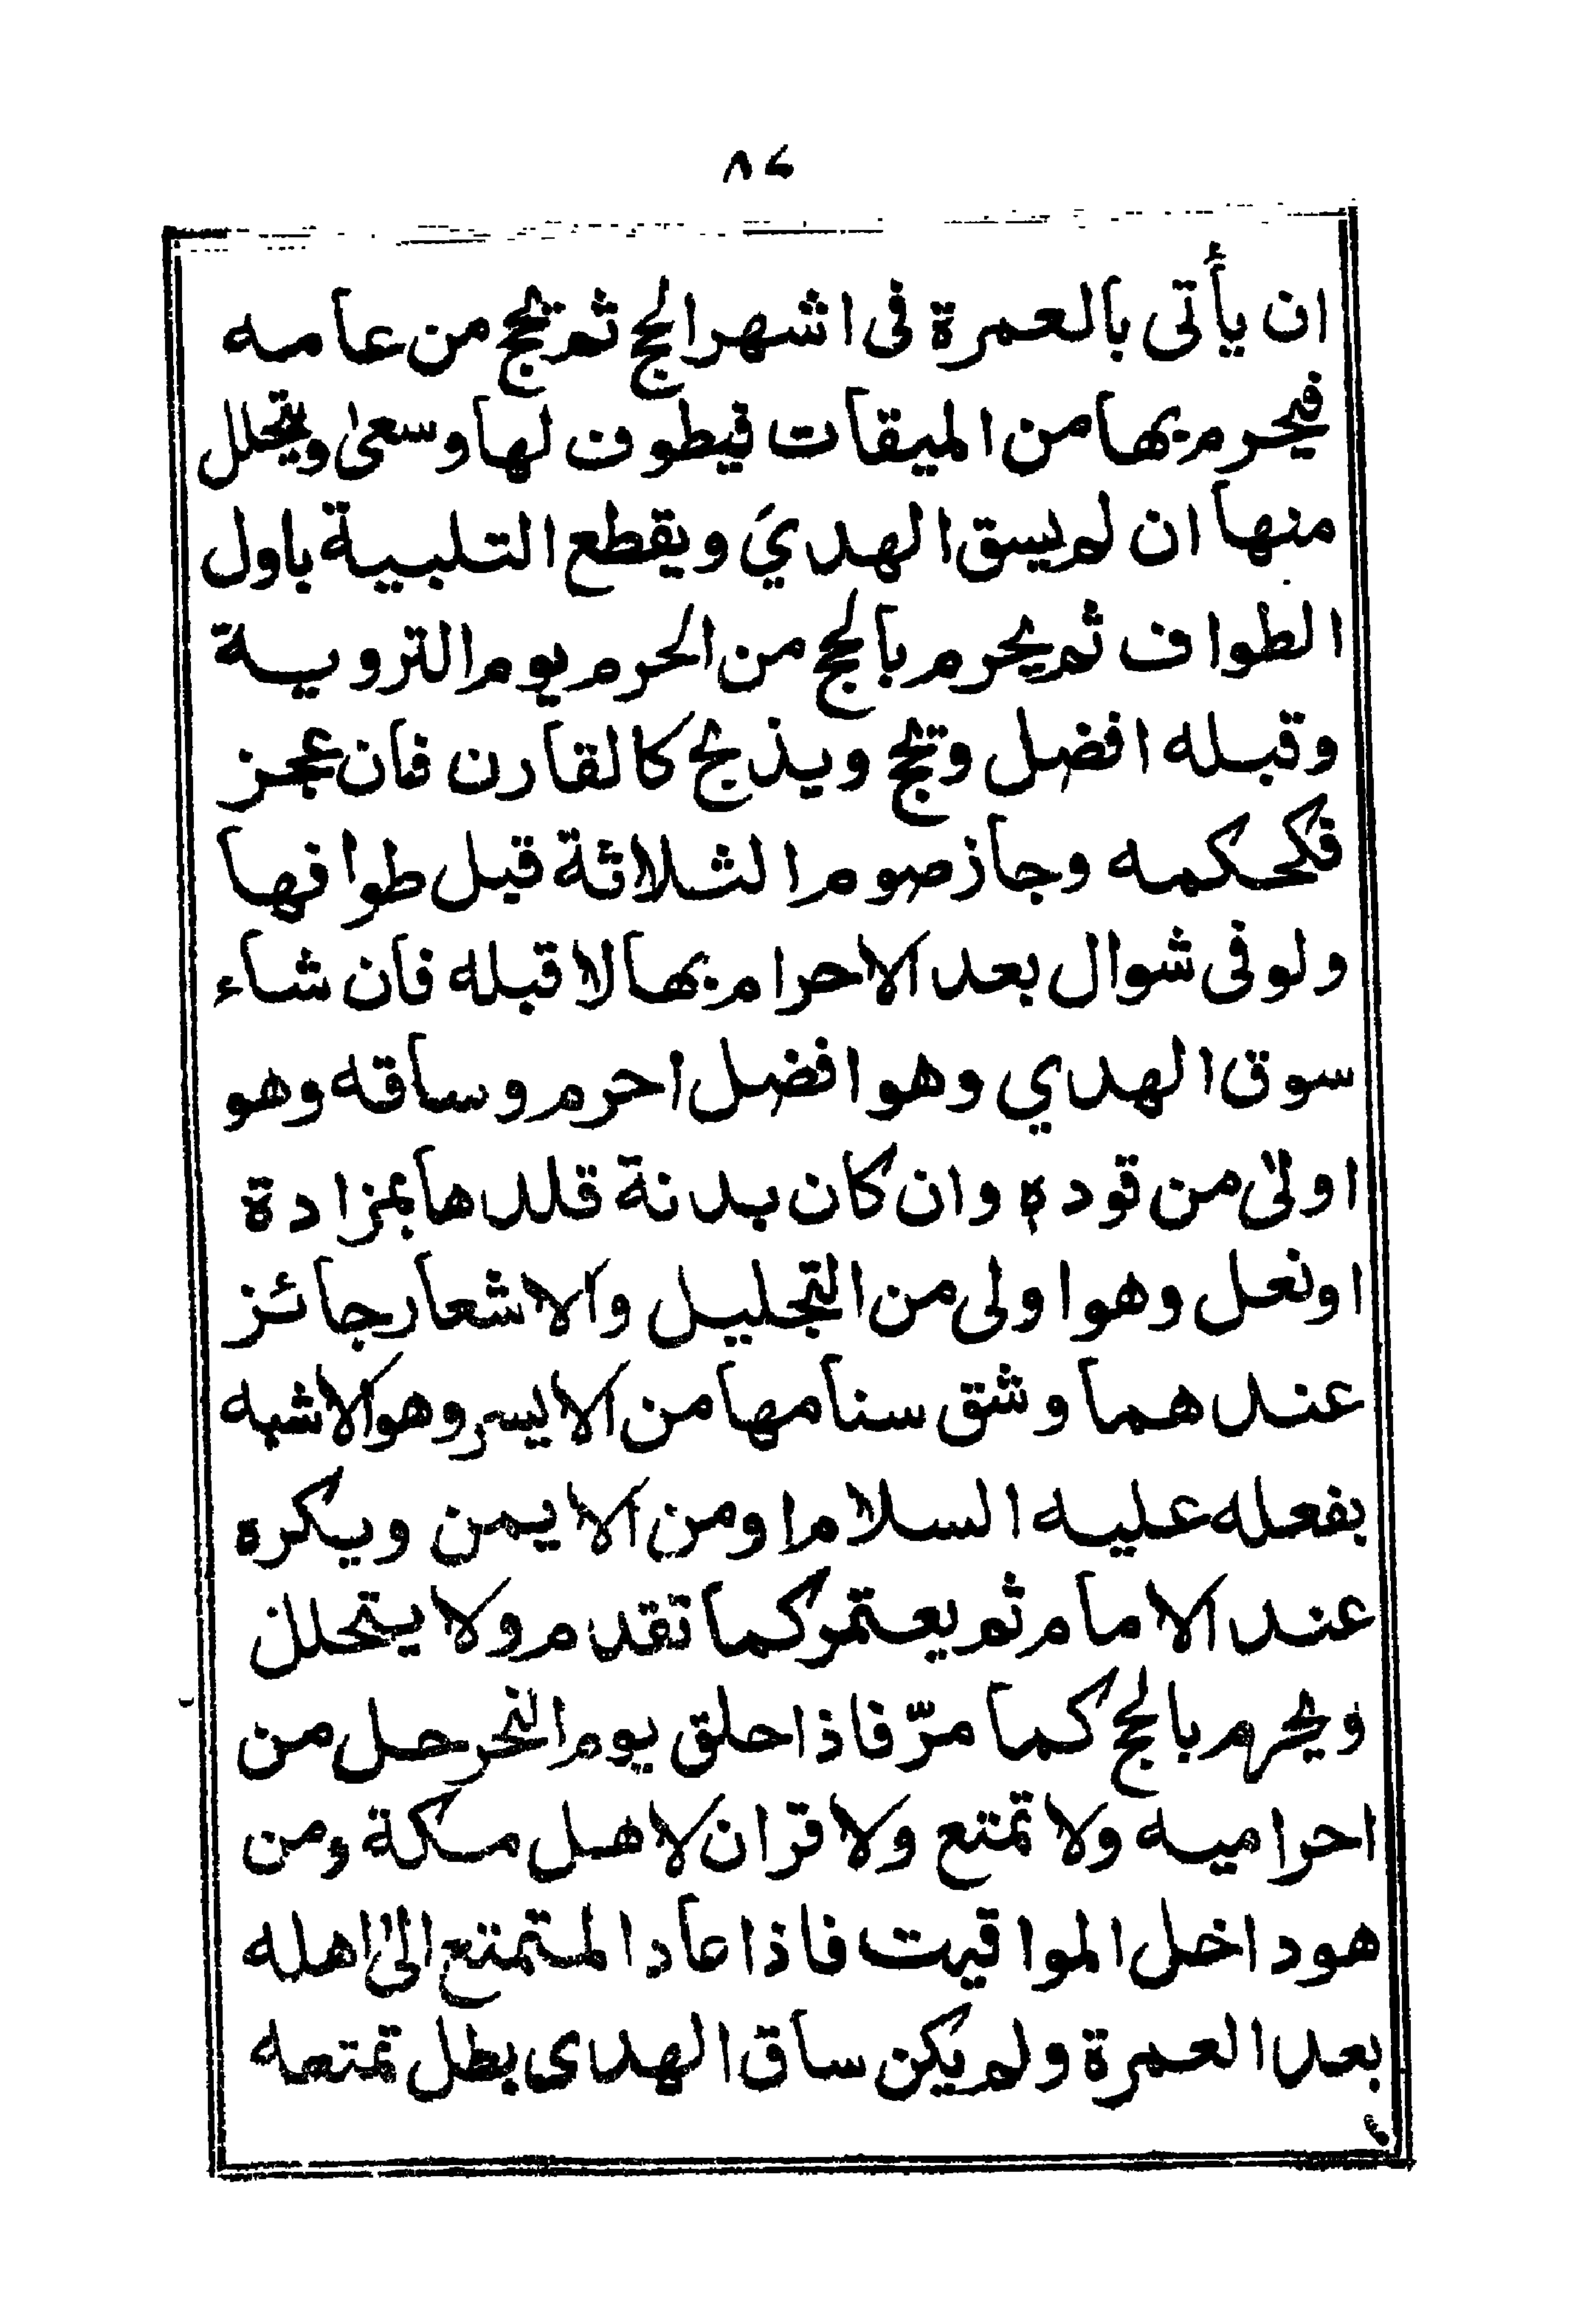 ٨٤
ان يأتى بالعمرة فى اشهر الحج ثم يحج من عامه
فيحرم بها من الميقات فيطوف لها وسعى ويتحلل
منها ان لم يسق الهدي ويقطع التلبية باول
الطواف ثم يحرم بالحج من الحرم يوم التروية
وقبله افضل ويحج ويذبح كالقارن فان عجز
فكحكمه وجاز صوم الثلاثة قبل طوافها
ولو فى شوال بعد الاحرام بها لا قبله فان شاء
سوق الهدي وهو افضل احرم وساقه وهو
اولى من قوده وان كان بدنة قلدها بمزادة
او نعل وهو اولى من التجليل والاشعار جائز
عندهما وشق سنامها من الايسر وهو الاشبه
بفعله عليه السلام او من الايمن ويكره
عند الامام ثم يعتمر كما تقدم ولا يتحلل
ويحرم بالحج كما مرّ فاذا حلق يوم النحر حل من
احراميه ولا تمتع ولا قران لاهل مكة ومن
هو داخل المواقيت فاذا عاد المتمتع الى اهله
بعد العمرة ولم يكن ساق الهدى بطل تمتعه